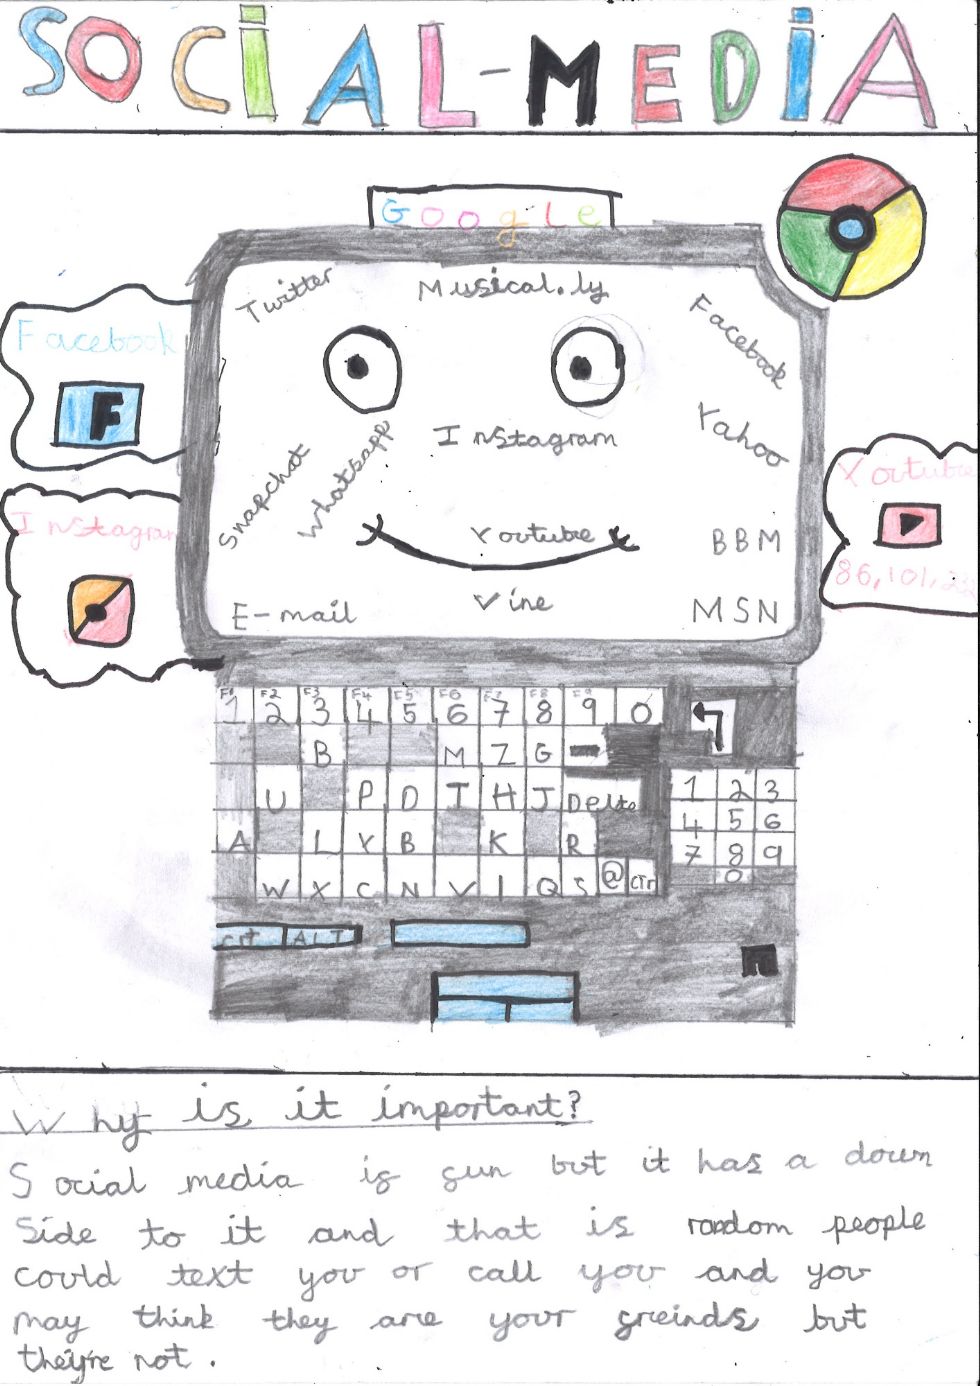 SOCIAL-MEDIA
Google
Twitter
Musical.ly
Facebook
Facebook
F
Yahoo
Instagram
Snapchat
Whatsapp
Youtube
Instagram
Youtube
86,101,
BBM
E-mail
Vine
MSN
F1 F2 F3 F4 F5 F6 F7 F8 F9
1 2 3 4 5 6 7 8 9 0
B M Z G
U P D I H J Delte
1 2 3
A L Y B K R
4 5 6
7 8 9
W X C N V I Q S @ Ctrl
0
Crt ALT
Why is it important?
Social media is fun but it has a down
side to it and that is random people
could text you or call you and you
may think they are your freinds but
they're not.